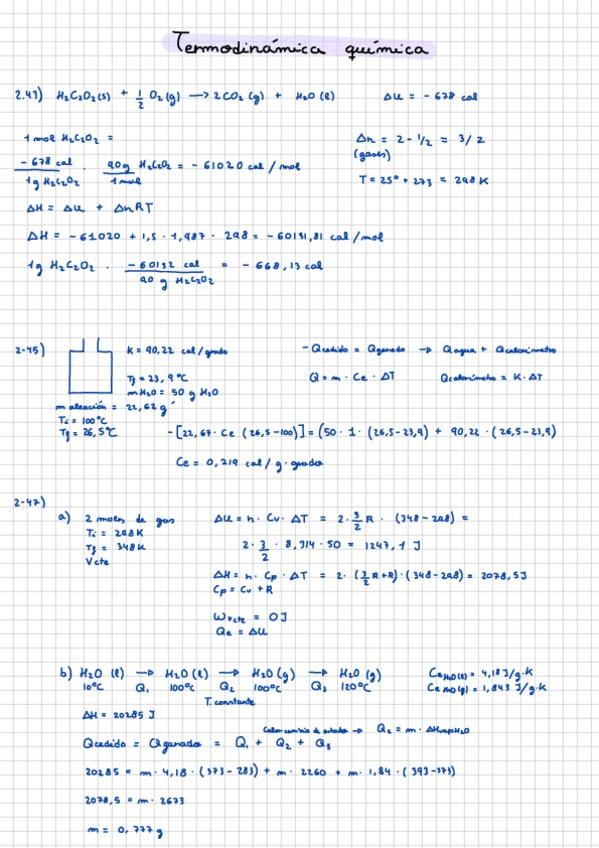 Termodinámica química
2.43) H₂C₂O₂(s) + 1/2 O₂(g) → 2CO₂(g) + H₂O(l) ΔU = -678 cal
1 mol H₂C₂O₂ = Δn = 2 - 1/2 = 3/2
(gases)
-678 cal / 1g H₂C₂O₂ · 90g H₂C₂O₂ / 1 mol = -61020 cal/mol
T = 25° + 273 = 298 K
ΔH = ΔU + ΔnRT
ΔH = -61020 + 1,5 · 1,987 · 298 = -60131,81 cal/mol
1g H₂C₂O₂ · -60132 cal / 90 g H₂C₂O₂ = -668,13 cal
2-45) K = 90,22 cal/grado - Qcedido = Qganado → Qagua + Qcalorímetro
Tj = 23,9°C Q = m · Ce · ΔT Qcalorímetro = K·ΔT
m H₂O = 50 g H₂O
m aleación = 22,62 g
Ti = 100°C
Tf = 26,5°C -[22,67 · Ce (26,5-100)] = (50 · 1 · (26,5-23,9) + 90,22 · (26,5-23,9)
Ce = 0,219 cal/g·grados
2-47)
a) 2 moles de gas ΔU = n · Cv · ΔT = 2 · 3/2 R · (348-298) =
Ti = 298K
Tf = 348K 2 · 3/2 · 8,314 · 50 = 1247,1 J
V cte
ΔH = n · Cp · ΔT = 2 · (3/2 R+R) · (348-298) = 2078,5J
Cp = Cv + R
Wvcte = 0J
Qe = ΔU
b) H₂O (l) → H₂O (l) → H₂O (g) → H₂O (g) Ce H₂O(l) = 4,18 J/g·K
10°C Q₁ 100°C Q₂ 100°C Q₃ 120°C Ce H₂O(g) = 1,843 J/g·K
T. constante
ΔH = 20285 J
Calor cambio de estado → Q₂ = m · ΔHvapH₂O
Qcedido = Qganado = Q₁ + Q₂ + Q₃
20285 = m · 4,18 · (373-283) + m · 2260 + m · 1,84 · (393-373)
2078,5 = m · 2673
m = 0,777 g